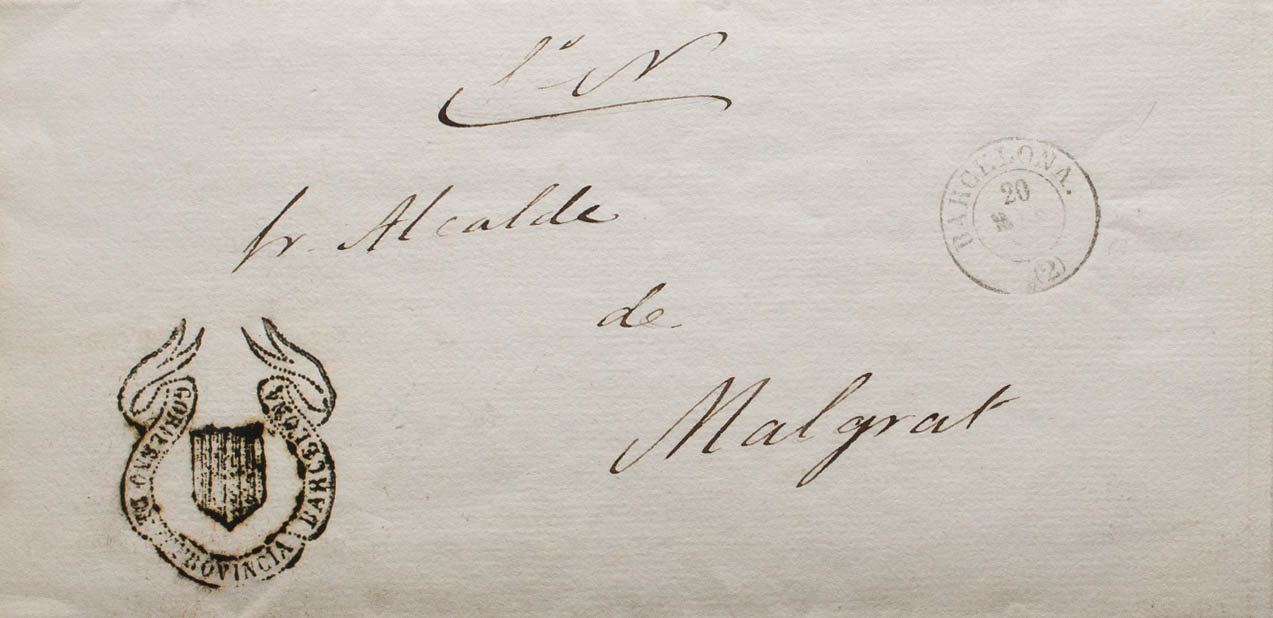 S. N.
Sr. Alcalde
BARCELONA.
20
(2)
de
Malgrat
GOBIERNO DE PROVINCIA BARCELONA